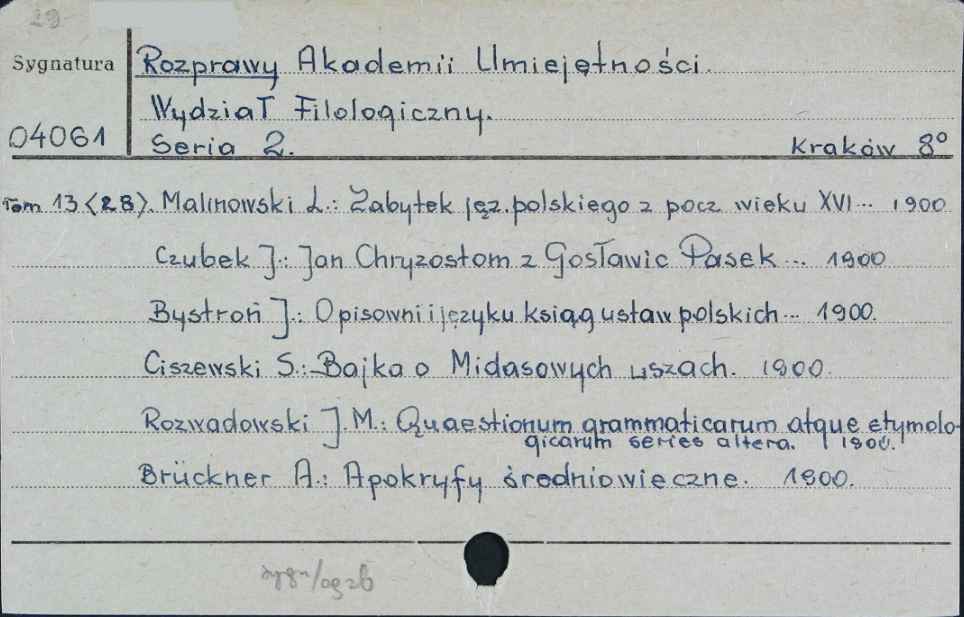 29
Sygnatura
Rozprawy Akademii Umiejętności.
Wydział Filologiczny.
04061
Seria 2. Kraków 8°
Tom 13 (28). Malinowski L.: Zabytek jęz. polskiego z pocz wieku XVI... 1900
Czubek J.: Jan Chryzostom z Gosławic Pasek... 1900
Bystroń J.: O pisowni i języku ksiąg ustaw polskich... 1900.
Ciszewski S.: Bajka o Midasowych uszach. 1900.
Rozwadowski J. M.: Quaestionum grammaticarum atque etymolo-
gicarum series altera. 1900.
Brückner A.: Apokryfy średniowieczne. 1900.